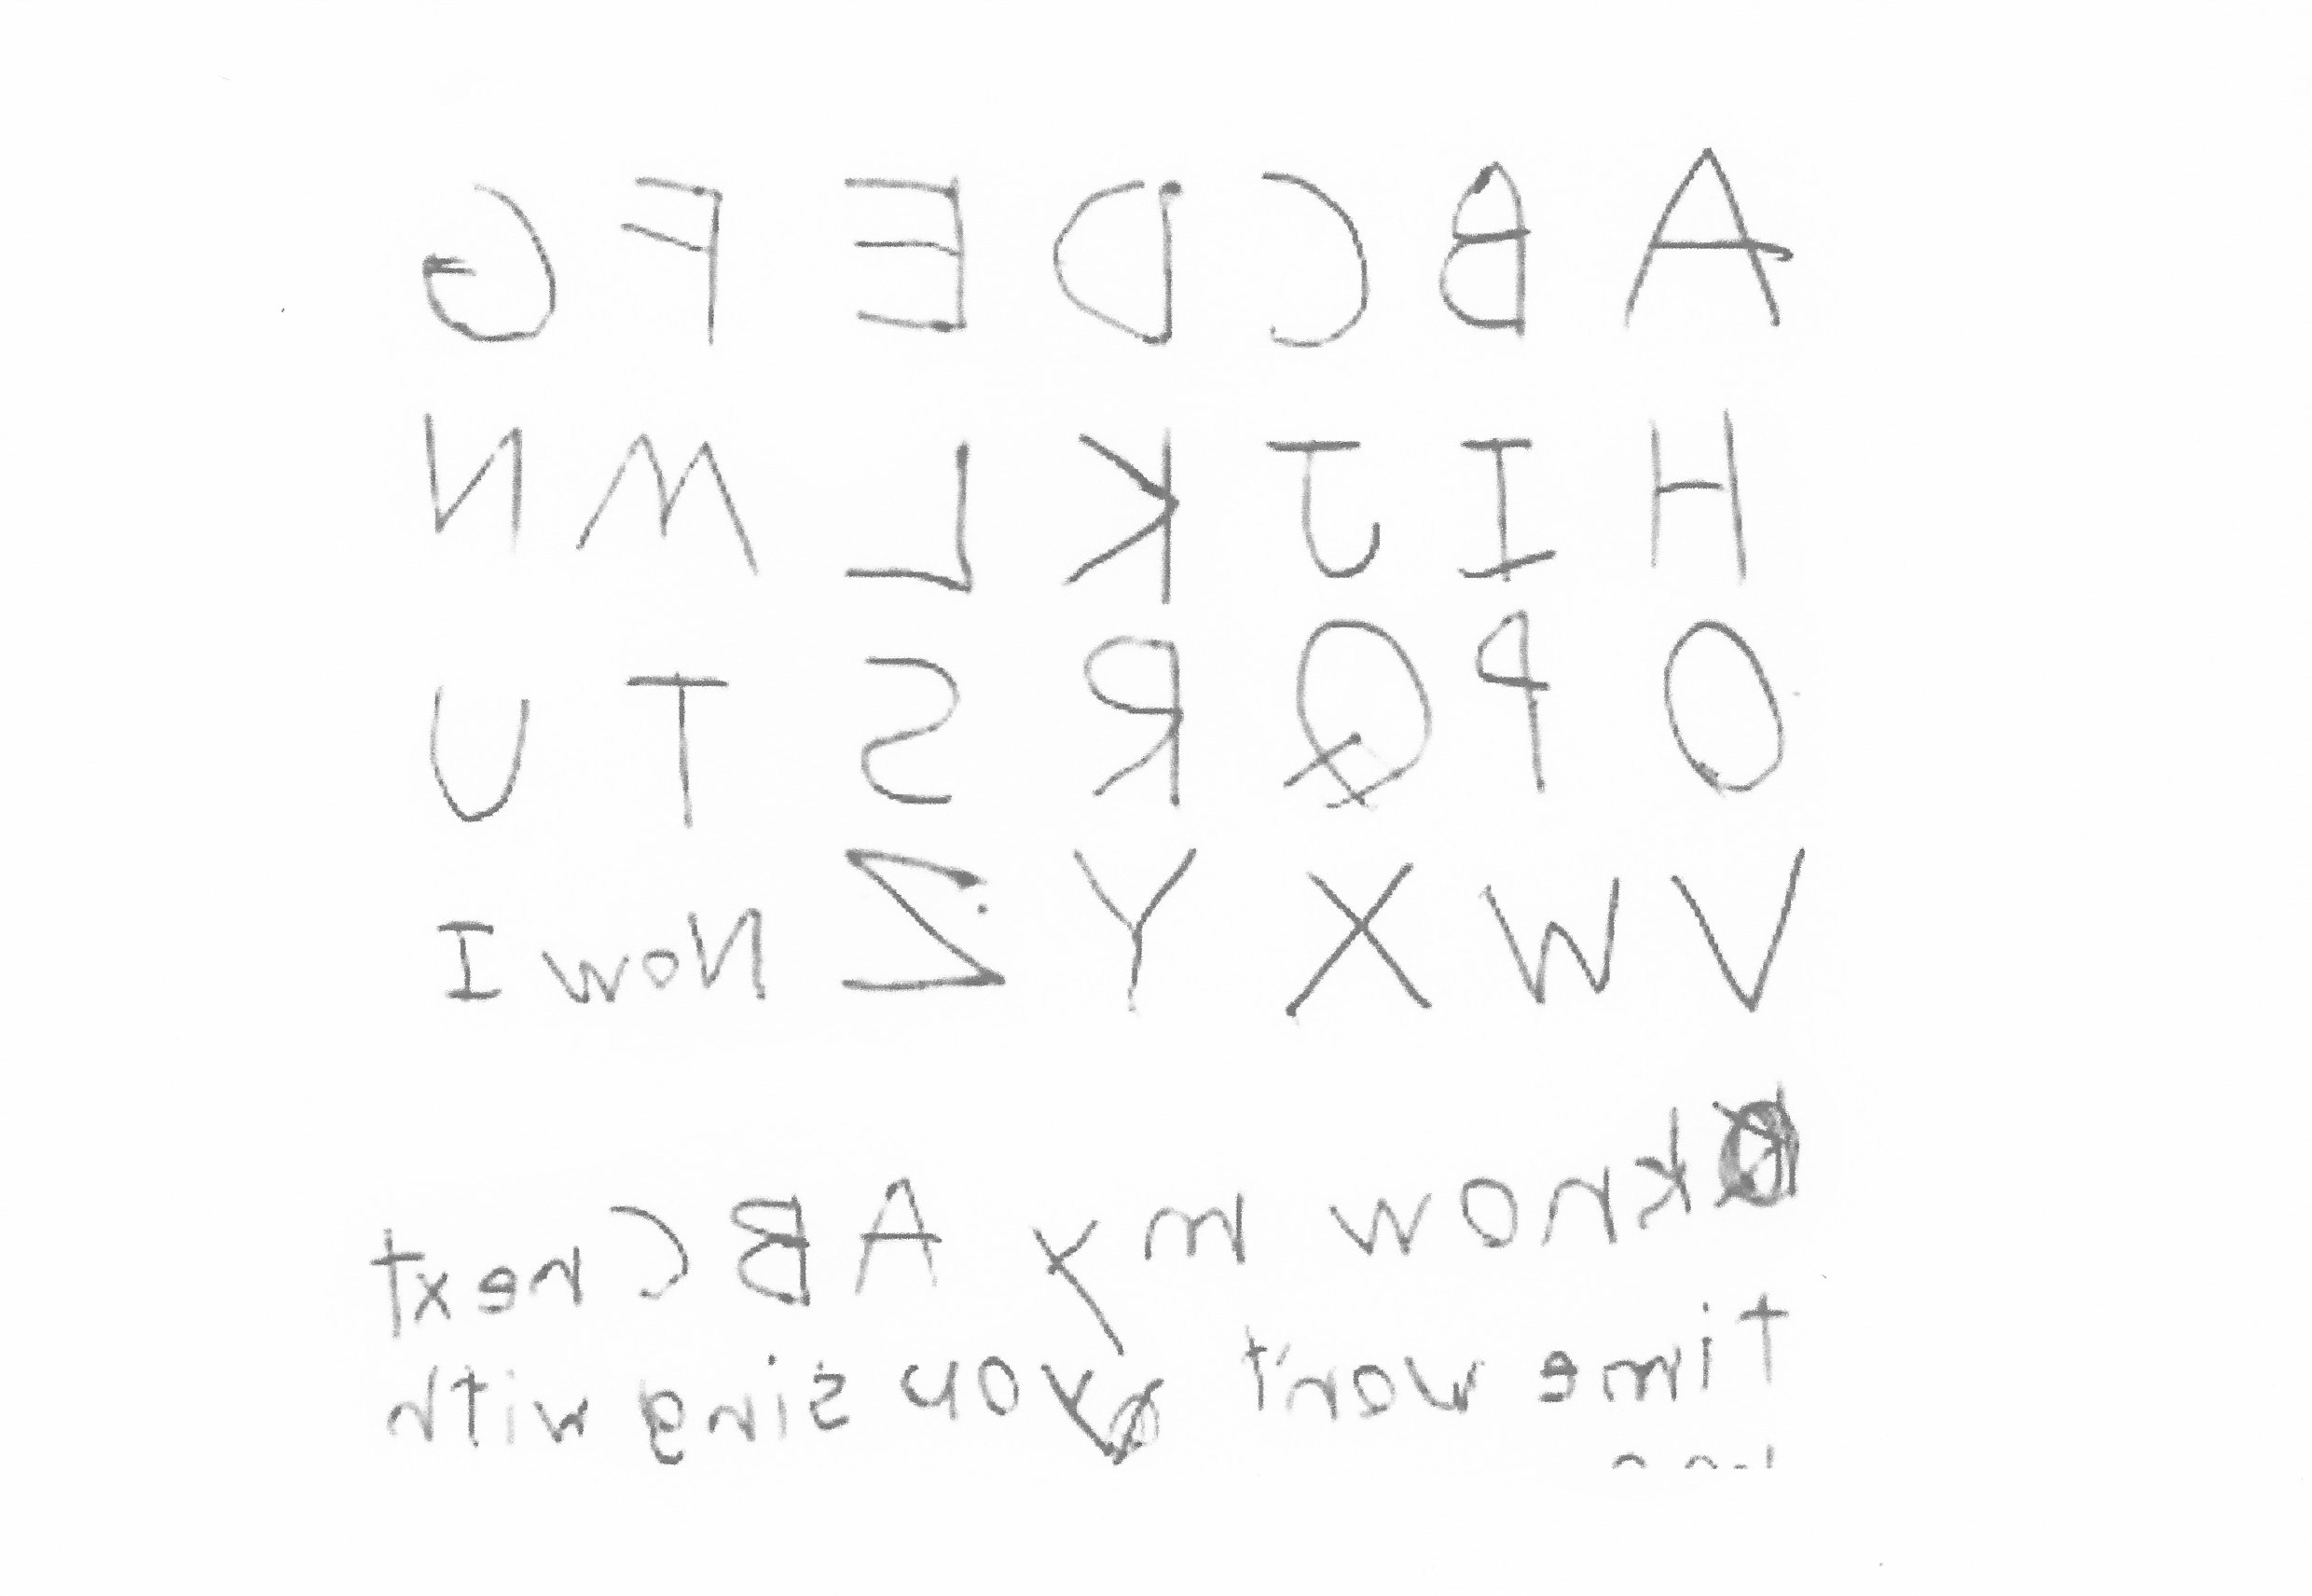 A B C D E F G
H I J K L M N
O P Q R S T U
V W X Y Z Now I
know my ABC next
Time won't you sing with